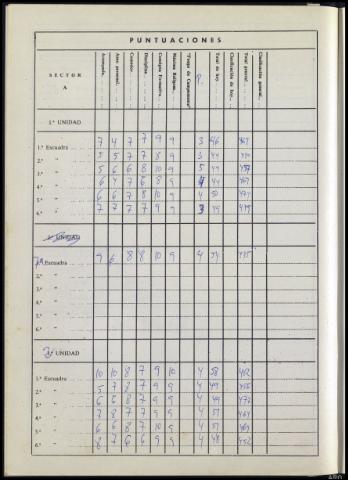 PUNTUACIONES
SECTOR
A
Acampada
Aseo personal
Comedor
Disciplina
Consigna Formativa
Máxima Religiosa
"Fuego de Campamento"
P.
Total de hoy
Clasificación de hoy
Total general
Clasificación general
1.ª UNIDAD
1.ª Escuadra 7 4 7 7 9 9 3 46
2.ª " 5 5 7 7 8 9 3 44
3.ª " 5 6 6 8 10 9 5 49
4.ª " 6 4 7 6 8 9 4 44
5.ª " 6 6 7 8 10 9 4 50
6.ª " 7 7 7 7 9 9 3 49
UNIDAD
7.ª Escuadra 9 6 8 8 10 9 4 54
2.ª "
3.ª "
4.ª "
5.ª "
6.ª "
UNIDAD
1.ª Escuadra 10 10 8 7 9 10 4 58
2.ª " 5 7 8 7 9 9 4 49
3.ª " 6 6 8 7 9 9 4 49
4.ª " 7 8 7 7 9 9 4 51
5.ª " 6 6 8 7 10 9 4 51
6.ª " 8 7 6 6 9 9 4 48